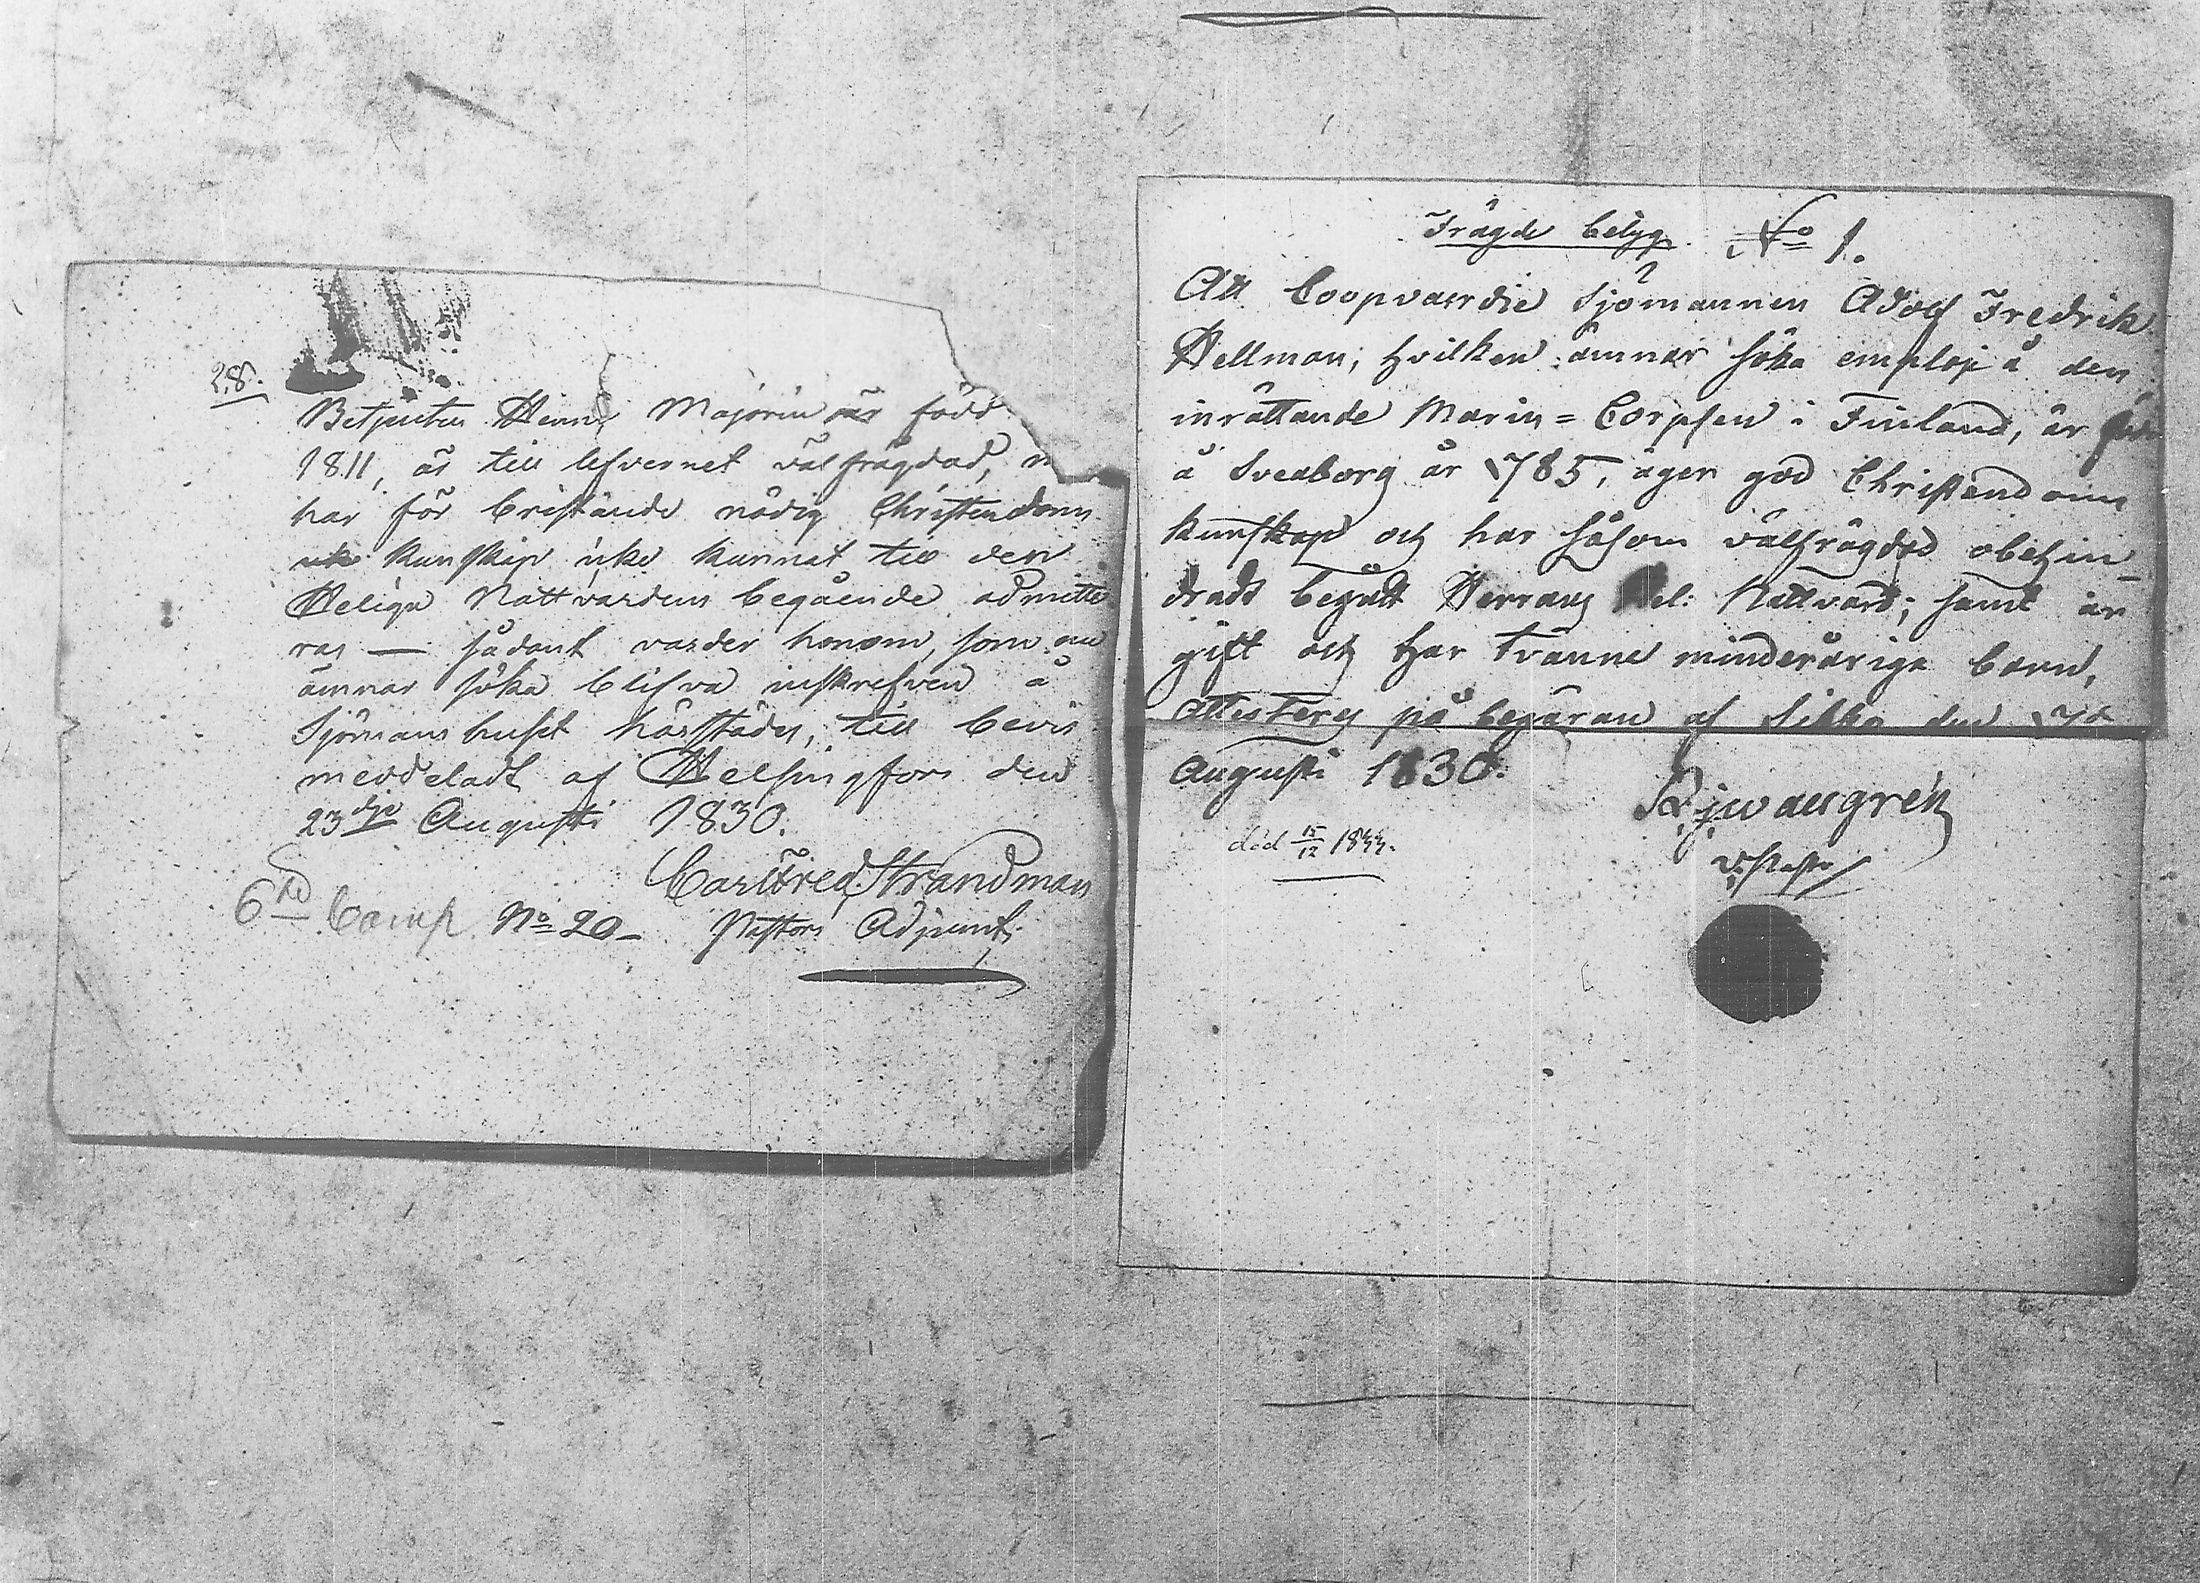 28.
Betjenten Henric Majorin är född
1811, är till lefvernet välfrägdad, m
har för bristande nödig Christendoms
kunskap icke kunnat till den
Heliga Nattvardens begående admitte
ras — sådant varder honom, som nu
ämnar söka blifva inskrefven å
Sjömanshuset härstädes, till bevis
meddeladt af Helsingfors den
23dje Augusti 1830.
Carl Fred. Strandman
Pastors Adjunct.
6te Comp No 20
Frägde betyg No 1.
Att Coopvaerdie Sjömannen Adolf Fredrik
Hellman, hvilken ämnar söka emploj å den
inrättande Marin=Corpsen i Finland, är född
å Sveaborg år 1785, äger god Christendoms
kunskap och har såsom välfrägdad obehin-
dradt begådt Herrans Hel: Nattvard; samt är
gift och har tvänne minderåriga barn,
attesteras på begäran af Sibbo den
Augusti 1830.
V. Pastor
död 15/12 1844.